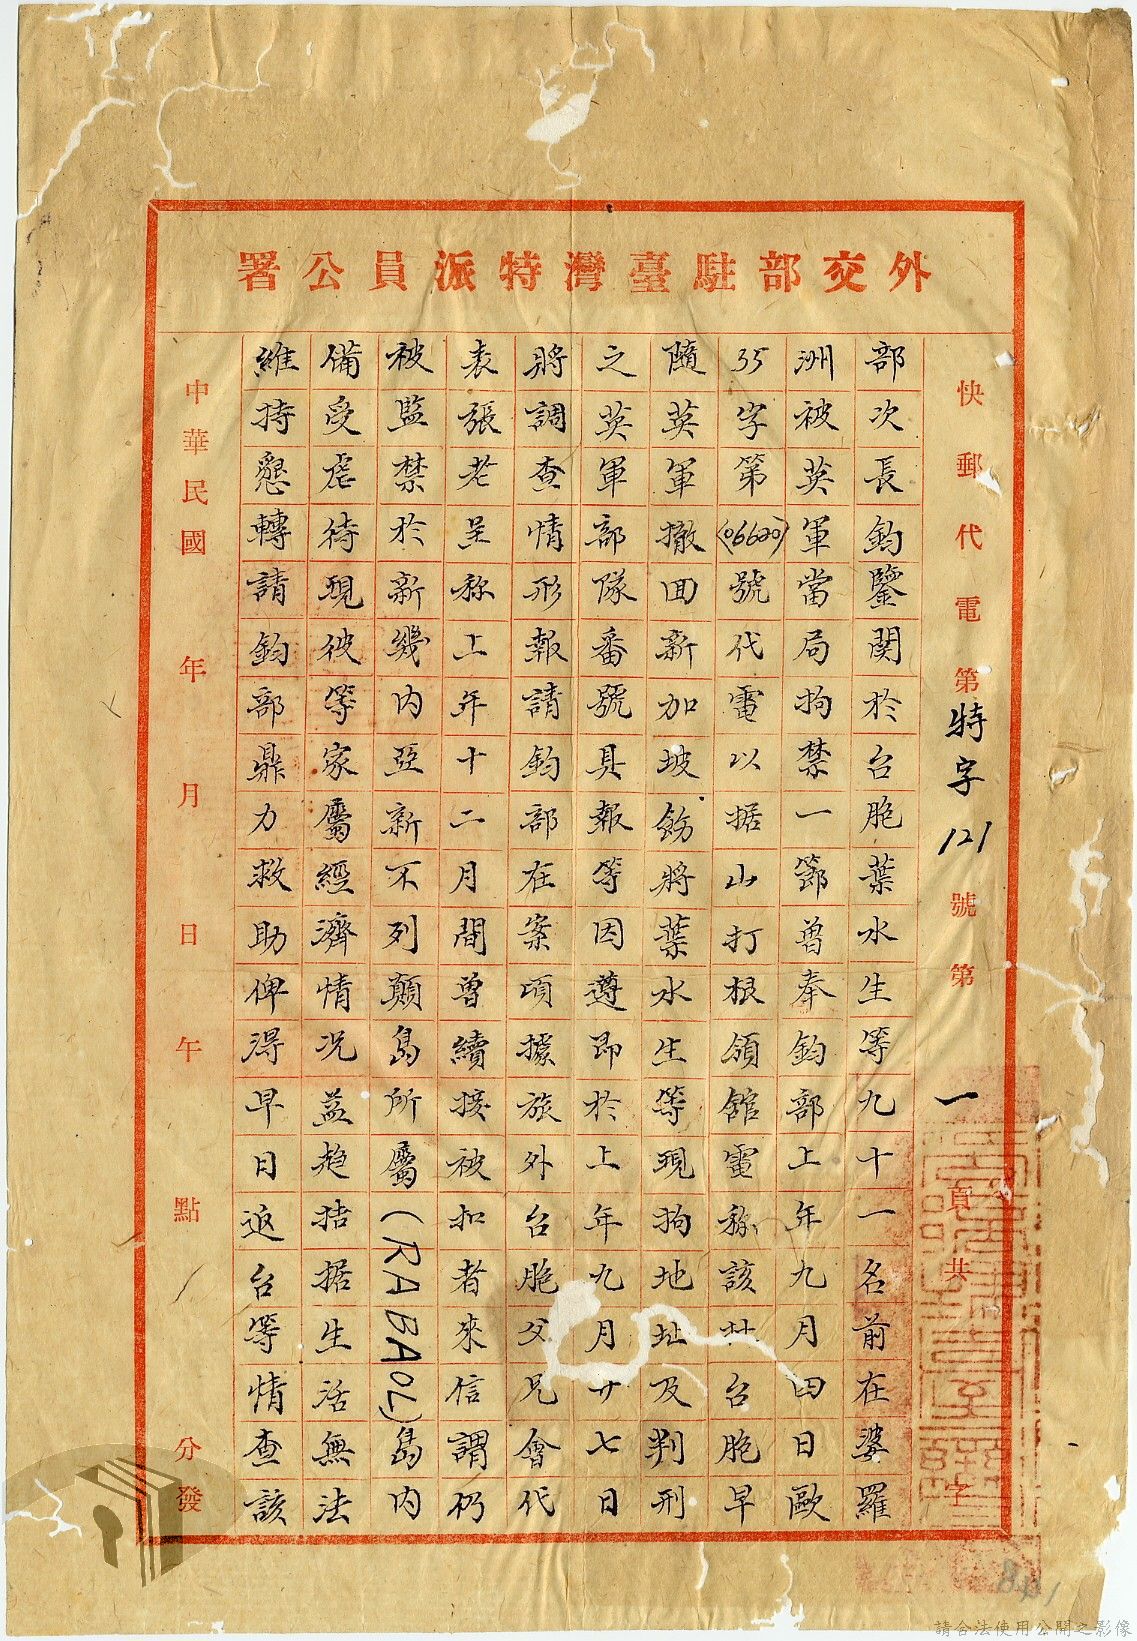 外交部駐臺灣特派員公署
快郵代電第特字121號第一頁共 字
部次長鈞鑒関於台胞葉水生等九十一名前在婆羅
洲被英軍當局拘禁一節曾奉鈞部上年九月四日歐
35字第(06620)號代電以据山打根領館電稱該廿台胞早
隨英軍撤回新加坡飭將葉水生等現拘地址及判刑
之英軍部隊番號具報等因遵即於上年九月廿七日
將調查情形報請鈞部在案頃據旅外台胞父兄會代
表張老呈称上年十二月間曾續接被扣者來信謂仍
被監禁於新幾內亞新不列顛島所屬(RABAOL)島內
備受虐待現彼等家屬經濟情况益趋拮据生活無法
維持懇轉請鈞部鼎力救助俾得早日返台等情查該
中華民國 年 月 日 午 點 分發
請合法使用公開之影像